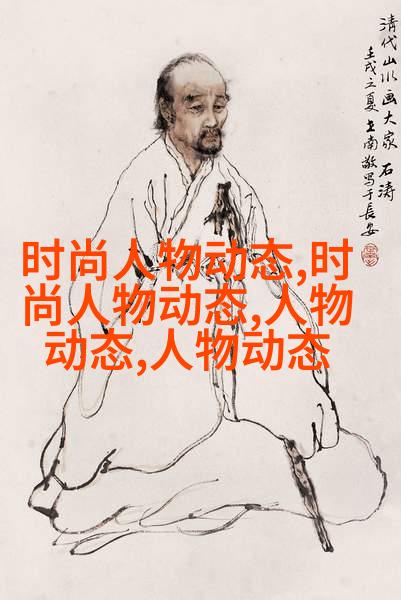 清代山水画大家 石涛
壬戌之夏 王南敬写于长安
时尚人物动态,时
尚人物动态,人物
动态,人物动态